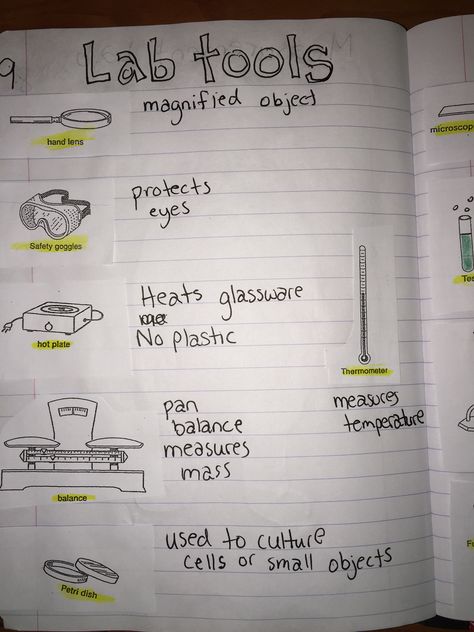 9
Lab tools
magnified object
hand lens
protects
eyes
Safety goggles
Heats glassware
No plastic
hot plate
Thermometer
measures
temperature
pan
balance
measures
mass
balance
used to culture
cells or small objects
Petri dish
microscop
Tes